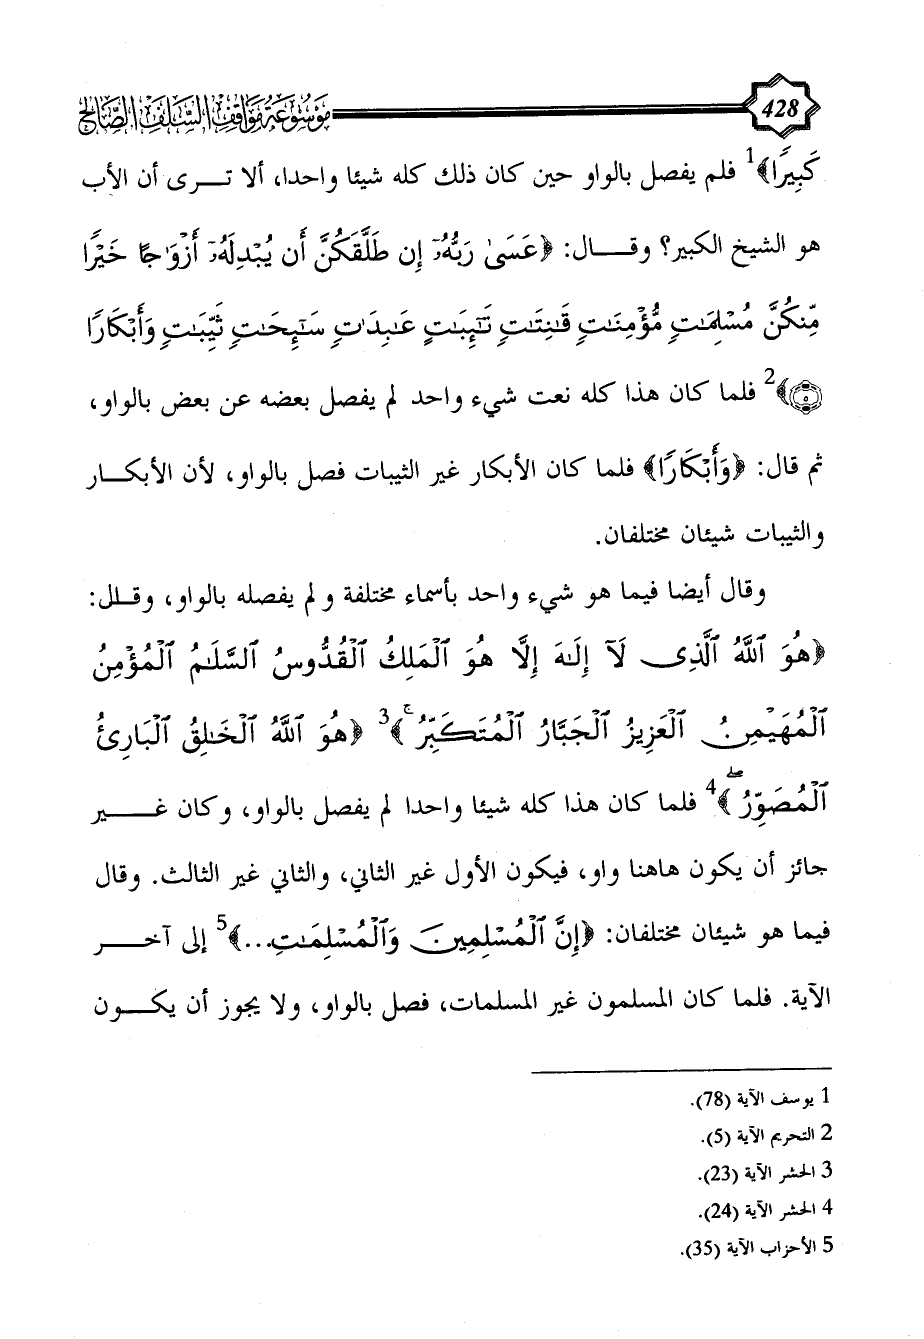 428 موسوعة مواقف السلف الصالح
كَبِيرًا﴾1 فلم يفصل بالواو حين كان ذلك كله شيئا واحدا، ألا تـــرى أن الأب
هو الشيخ الكبير؟ وقـــال: ﴿عَسَىٰ رَبُّهُۥٓ إِن طَلَّقَكُنَّ أَن يُبْدِلَهُۥٓ أَزْوَٰجًا خَيْرًا
مِّنكُنَّ مُسْلِمَٰتٍ مُّؤْمِنَٰتٍ قَٰنِتَٰتٍ تَٰٓئِبَٰتٍ عَٰبِدَٰتٍ سَٰٓئِحَٰتٍ ثَيِّبَٰتٍ وَأَبْكَارًا
۝٥﴾2 فلما كان هذا كله نعت شيء واحد لم يفصل بعضه عن بعض بالواو،
ثم قال: ﴿وَأَبْكَارًا﴾ فلما كان الأبكار غير الثيبات فصل بالواو، لأن الأبكـــار
والثيبات شيئان مختلفان.
وقال أيضا فيما هو شيء واحد بأسماء مختلفة ولم يفصله بالواو، وقـال:
﴿هُوَ ٱللَّهُ ٱلَّذِى لَآ إِلَٰهَ إِلَّا هُوَ ٱلْمَلِكُ ٱلْقُدُّوسُ ٱلسَّلَٰمُ ٱلْمُؤْمِنُ
ٱلْمُهَيْمِنُ ٱلْعَزِيزُ ٱلْجَبَّارُ ٱلْمُتَكَبِّرُ ۚ﴾3 ﴿هُوَ ٱللَّهُ ٱلْخَٰلِقُ ٱلْبَارِئُ
ٱلْمُصَوِّرُ ۖ﴾4 فلما كان هذا كله شيئا واحدا لم يفصل بالواو، وكان غـــــير
جائز أن يكون هاهنا واو، فيكون الأول غير الثاني، والثاني غير الثالث. وقال
فيما هو شيئان مختلفان: ﴿إِنَّ ٱلْمُسْلِمِينَ وَٱلْمُسْلِمَٰتِ...﴾5 إلى آخـــر
الآية. فلما كان المسلمون غير المسلمات، فصل بالواو، ولا يجوز أن يكـــون
1 يوسف الآية (78).
2 التحريم الآية (5).
3 الحشر الآية (23).
4 الحشر الآية (24).
5 الأحزاب الآية (35).